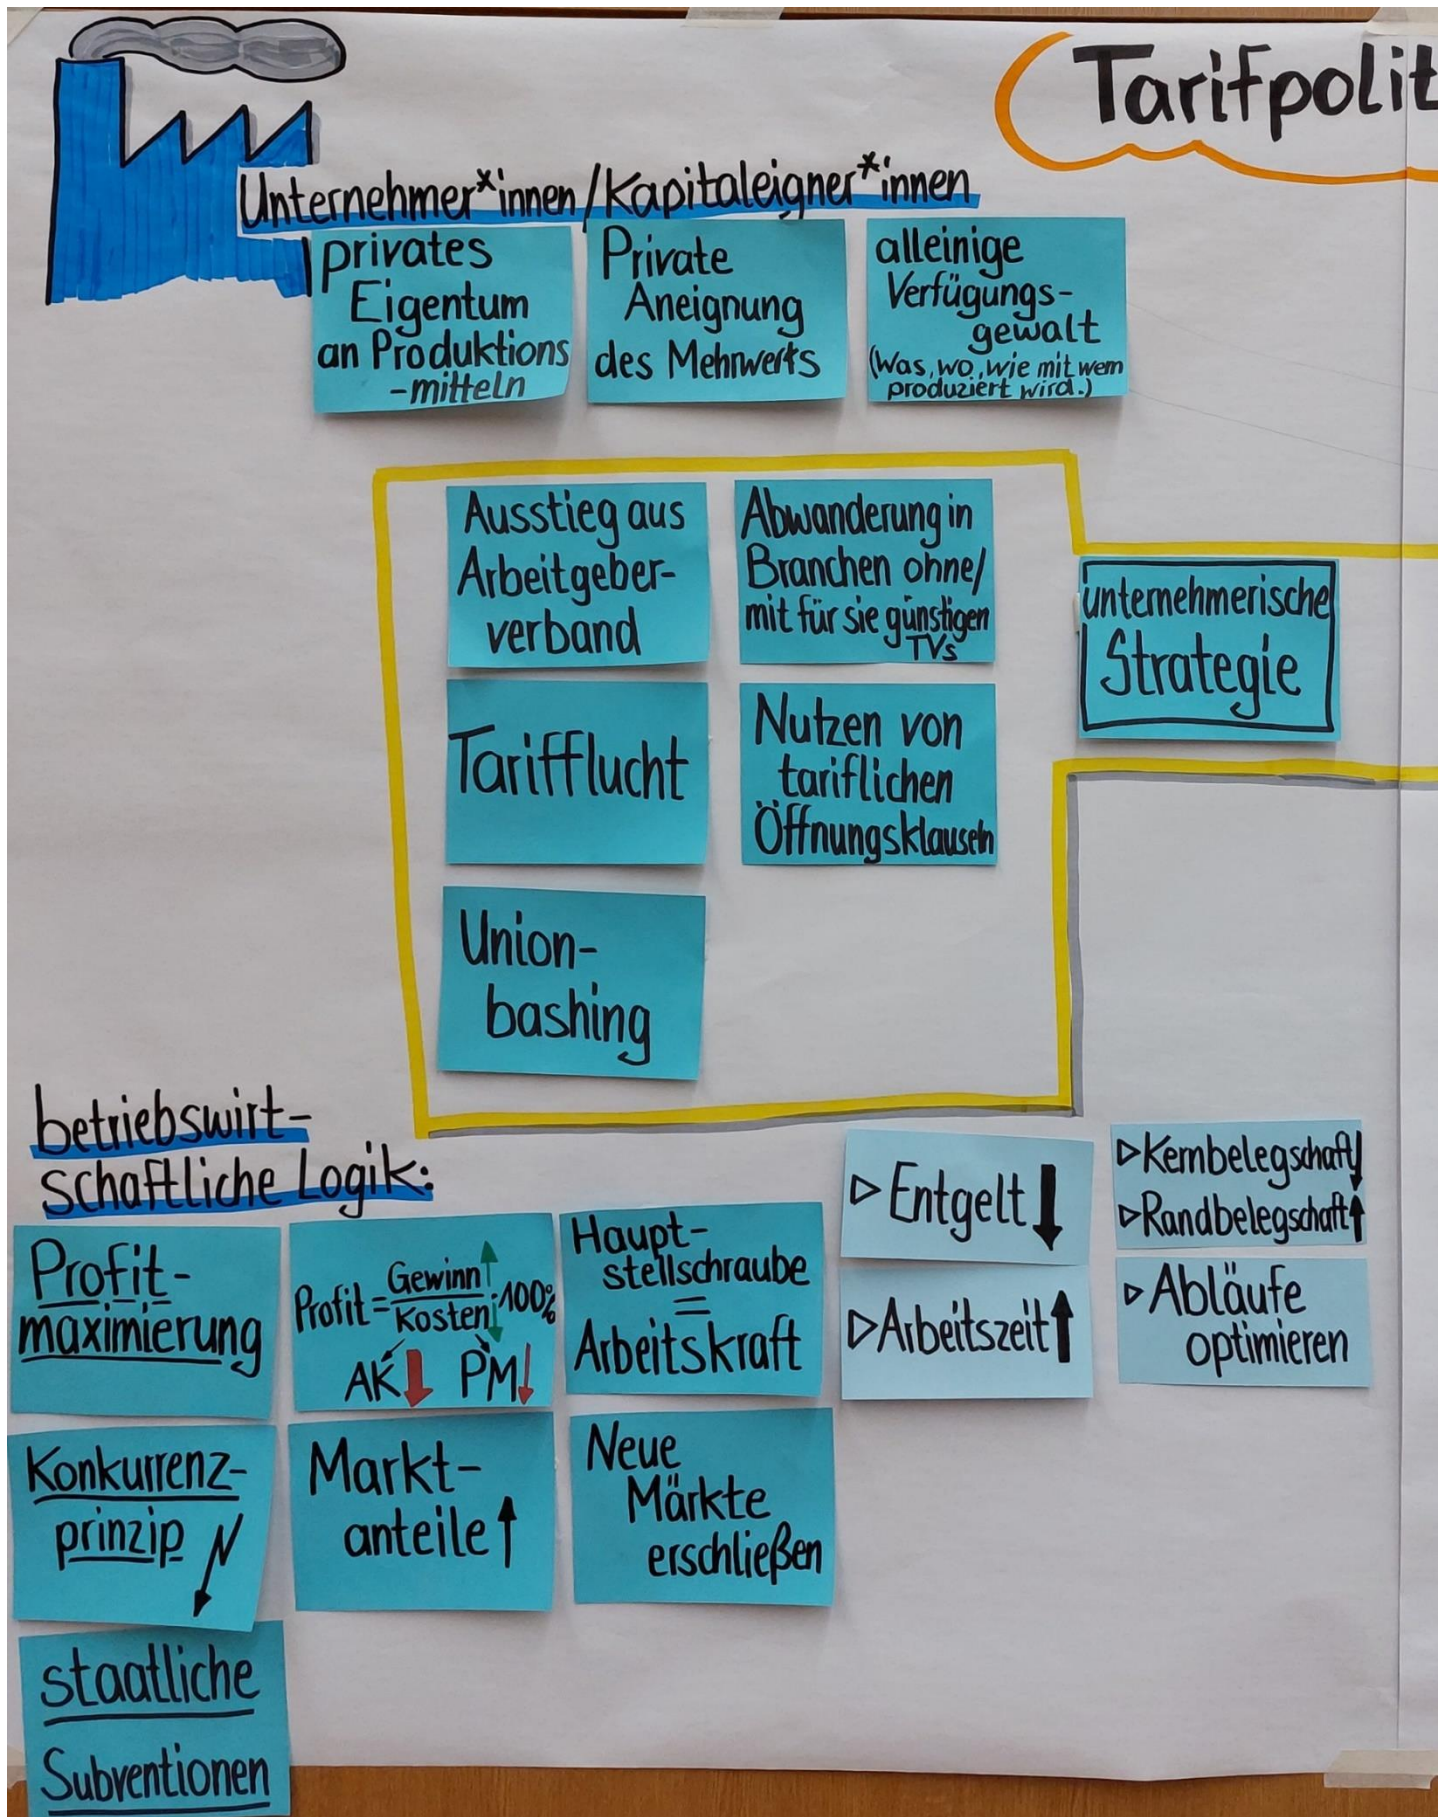 Tarifpolit
Unternehmer*innen/Kapitaleigner*innen
privates
Eigentum
an Produktions
-mitteln
Private
Aneignung
des Mehrwerts
alleinige
Verfügungs-
gewalt
(Was, wo, wie mit wem
produziert wird.)
Ausstieg aus
Arbeitgeber-
verband
Abwanderung in
Branchen ohne/
mit für sie günstigen
TVs
unternehmerische
Strategie
Tarifflucht
Nutzen von
tariflichen
Öffnungsklauseln
Union-
bashing
betriebswirt-
schaftliche Logik:
Profit-
maximierung
Profit = Gewinn↑
Kosten↓ · 100%
AK↓ PM↓
Haupt-
stellschraube
=
Arbeitskraft
▷ Entgelt ↓
▷ Arbeitszeit ↑
▷ Kernbelegschaft ↓
▷ Randbelegschaft ↑
▷ Abläufe
optimieren
Konkurrenz-
prinzip
Markt-
anteile ↑
Neue
Märkte
erschließen
staatliche
Subventionen